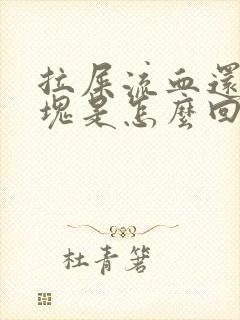 拉屎流血還
塊是怎麼回
杜青箬